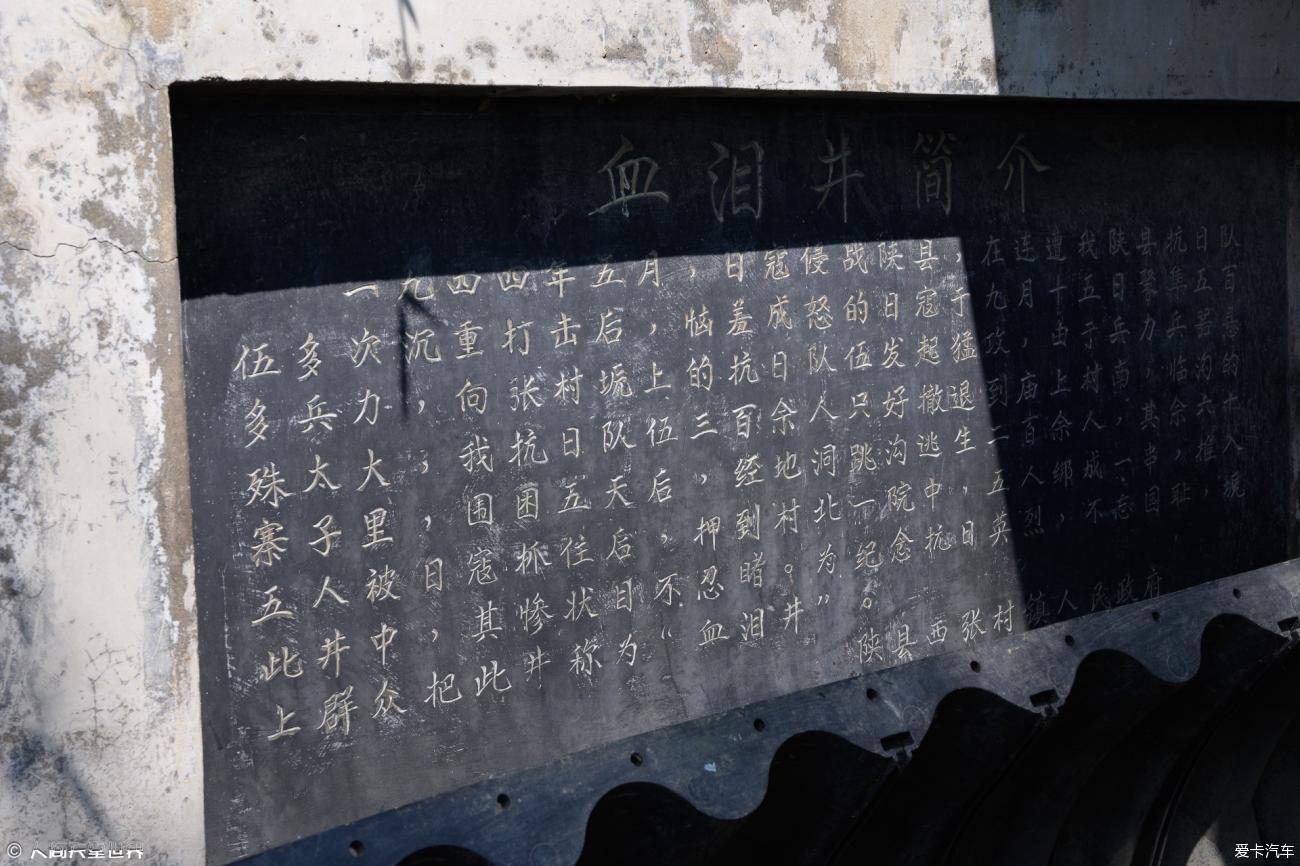 血泪井简介
一九四四年五月,日寇侵战陕县,在连遭我陕县抗日队
伍多次沉重打击后,恼羞成怒的日寇于九月十五日聚隼五百
多兵力,向张村塬上的抗日队伍发起猛攻,由于兵力兵器悬
殊太大;我抗日队伍三百余人只好撤退到庙上村南临沟的
寨子里,围困五天后,经地洞跳沟逃生二百余人,其余六十
五人被日寇抓住后,押到村北一院中,五人绑成一串,推入
此井中,其惨状目不忍睹。为纪念抗日英烈,不忘国耻,塬
上群众把此井称为“血泪井”。
陕县西张村镇人民政府
© 人间天堂世界
爱卡汽车